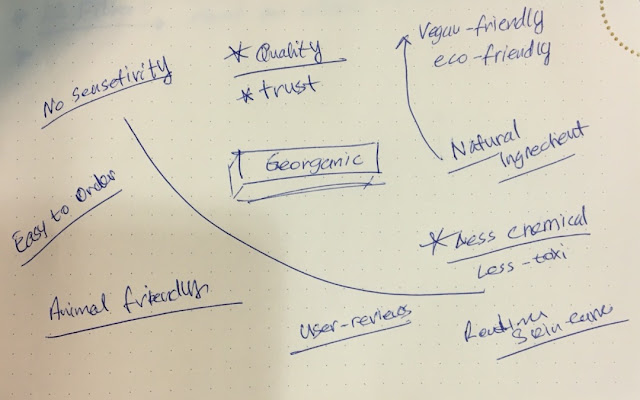 No sensetivity
* Quality
* trust
Vegan-friendly
eco-friendly
Georganic
Natural
Ingredient
Easy to Order
* Less chemical
Less-toxi
Animal friendly
User-reviews
Skin-care